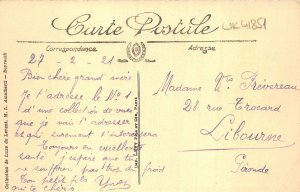 Carte Postale
WK41851
Correspondance
Adresse
27 - 2 - 21
Bien chère grand mère
Je t'adresse le No 1
d'une collection de vues
que je vais t'adresser
et qui surement t'intéressera
Toujours en excellente
santé j'espère que tu
ne souffres pas trop du froid
Ton petit fils
qui te chéris Yves
Madame Vve Prévereau
28 rue Trocard
Libourne
Gironde
Collection de Luxe du Levant, M.